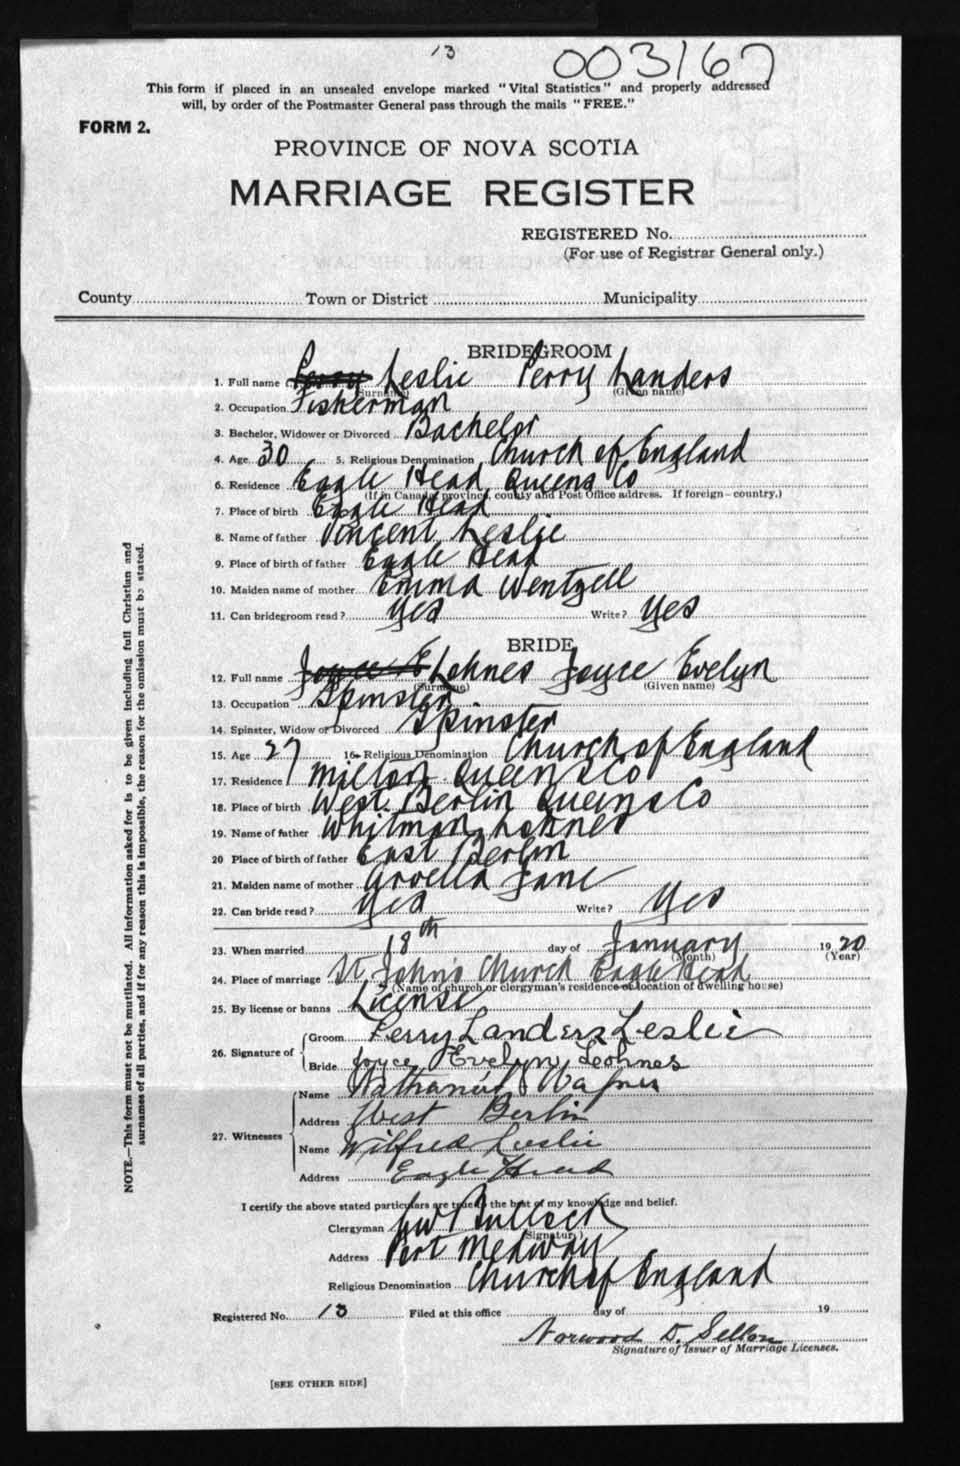 13 003167
This form if placed in an unsealed envelope marked "Vital Statistics" and properly addressed
will, by order of the Postmaster General pass through the mails "FREE."
FORM 2.
PROVINCE OF NOVA SCOTIA
MARRIAGE REGISTER
REGISTERED No.
(For use of Registrar General only.)
County Town or District Municipality
BRIDEGROOM
1. Full name Perry Leslie Perry Landers
(Surname) (Given name)
2. Occupation Fisherman
3. Bachelor, Widower or Divorced Bachelor
4. Age 30 5. Religious Denomination Church of England
6. Residence Eagle Head Queens Co
(If in Canada, province, county and Post Office address. If foreign—country.)
7. Place of birth Eagle Head
8. Name of father Vincent Leslie
9. Place of birth of father Eagle Head
10. Maiden name of mother Emma Wentzell
11. Can bridegroom read? Yes Write? Yes
BRIDE
12. Full name Joyce E Lohnes Joyce Evelyn
(Surname) (Given name)
13. Occupation Spinster
14. Spinster, Widow or Divorced Spinster
15. Age 27 16. Religious Denomination Church of England
17. Residence Milton Queens Co
18. Place of birth West Berlin Queens Co
19. Name of father Whitman Lohnes
20 Place of birth of father East Berlin
21. Maiden name of mother Arvella Jane
22. Can bride read? Yes Write? Yes
23. When married 18th day of January 1920
(Month) (Year)
24. Place of marriage St. John's Church Eagle Head
(Name of church or clergyman's residence or location of dwelling house)
25. By license or banns License
26. Signature of Groom Perry Landers Leslie
Bride Joyce Evelyn Leohnes
27. Witnesses Name Nathaniel Wagner
Address West Berlin
Name Wilfred Leslie
Address Eagle Head
I certify the above stated particulars are true to the best of my knowledge and belief.
Clergyman Bullock
(Signature)
Address Port Medway
Religious Denomination Church of England
Registered No. 13 Filed at this office day of 19
Norwood D. Sellon
Signature of Issuer of Marriage Licenses.
[SEE OTHER SIDE]
NOTE.—This form must not be mutilated. All information asked for is to be given including full Christian and
surnames of all parties, and if for any reason this is impossible, the reason for the omission must be stated.